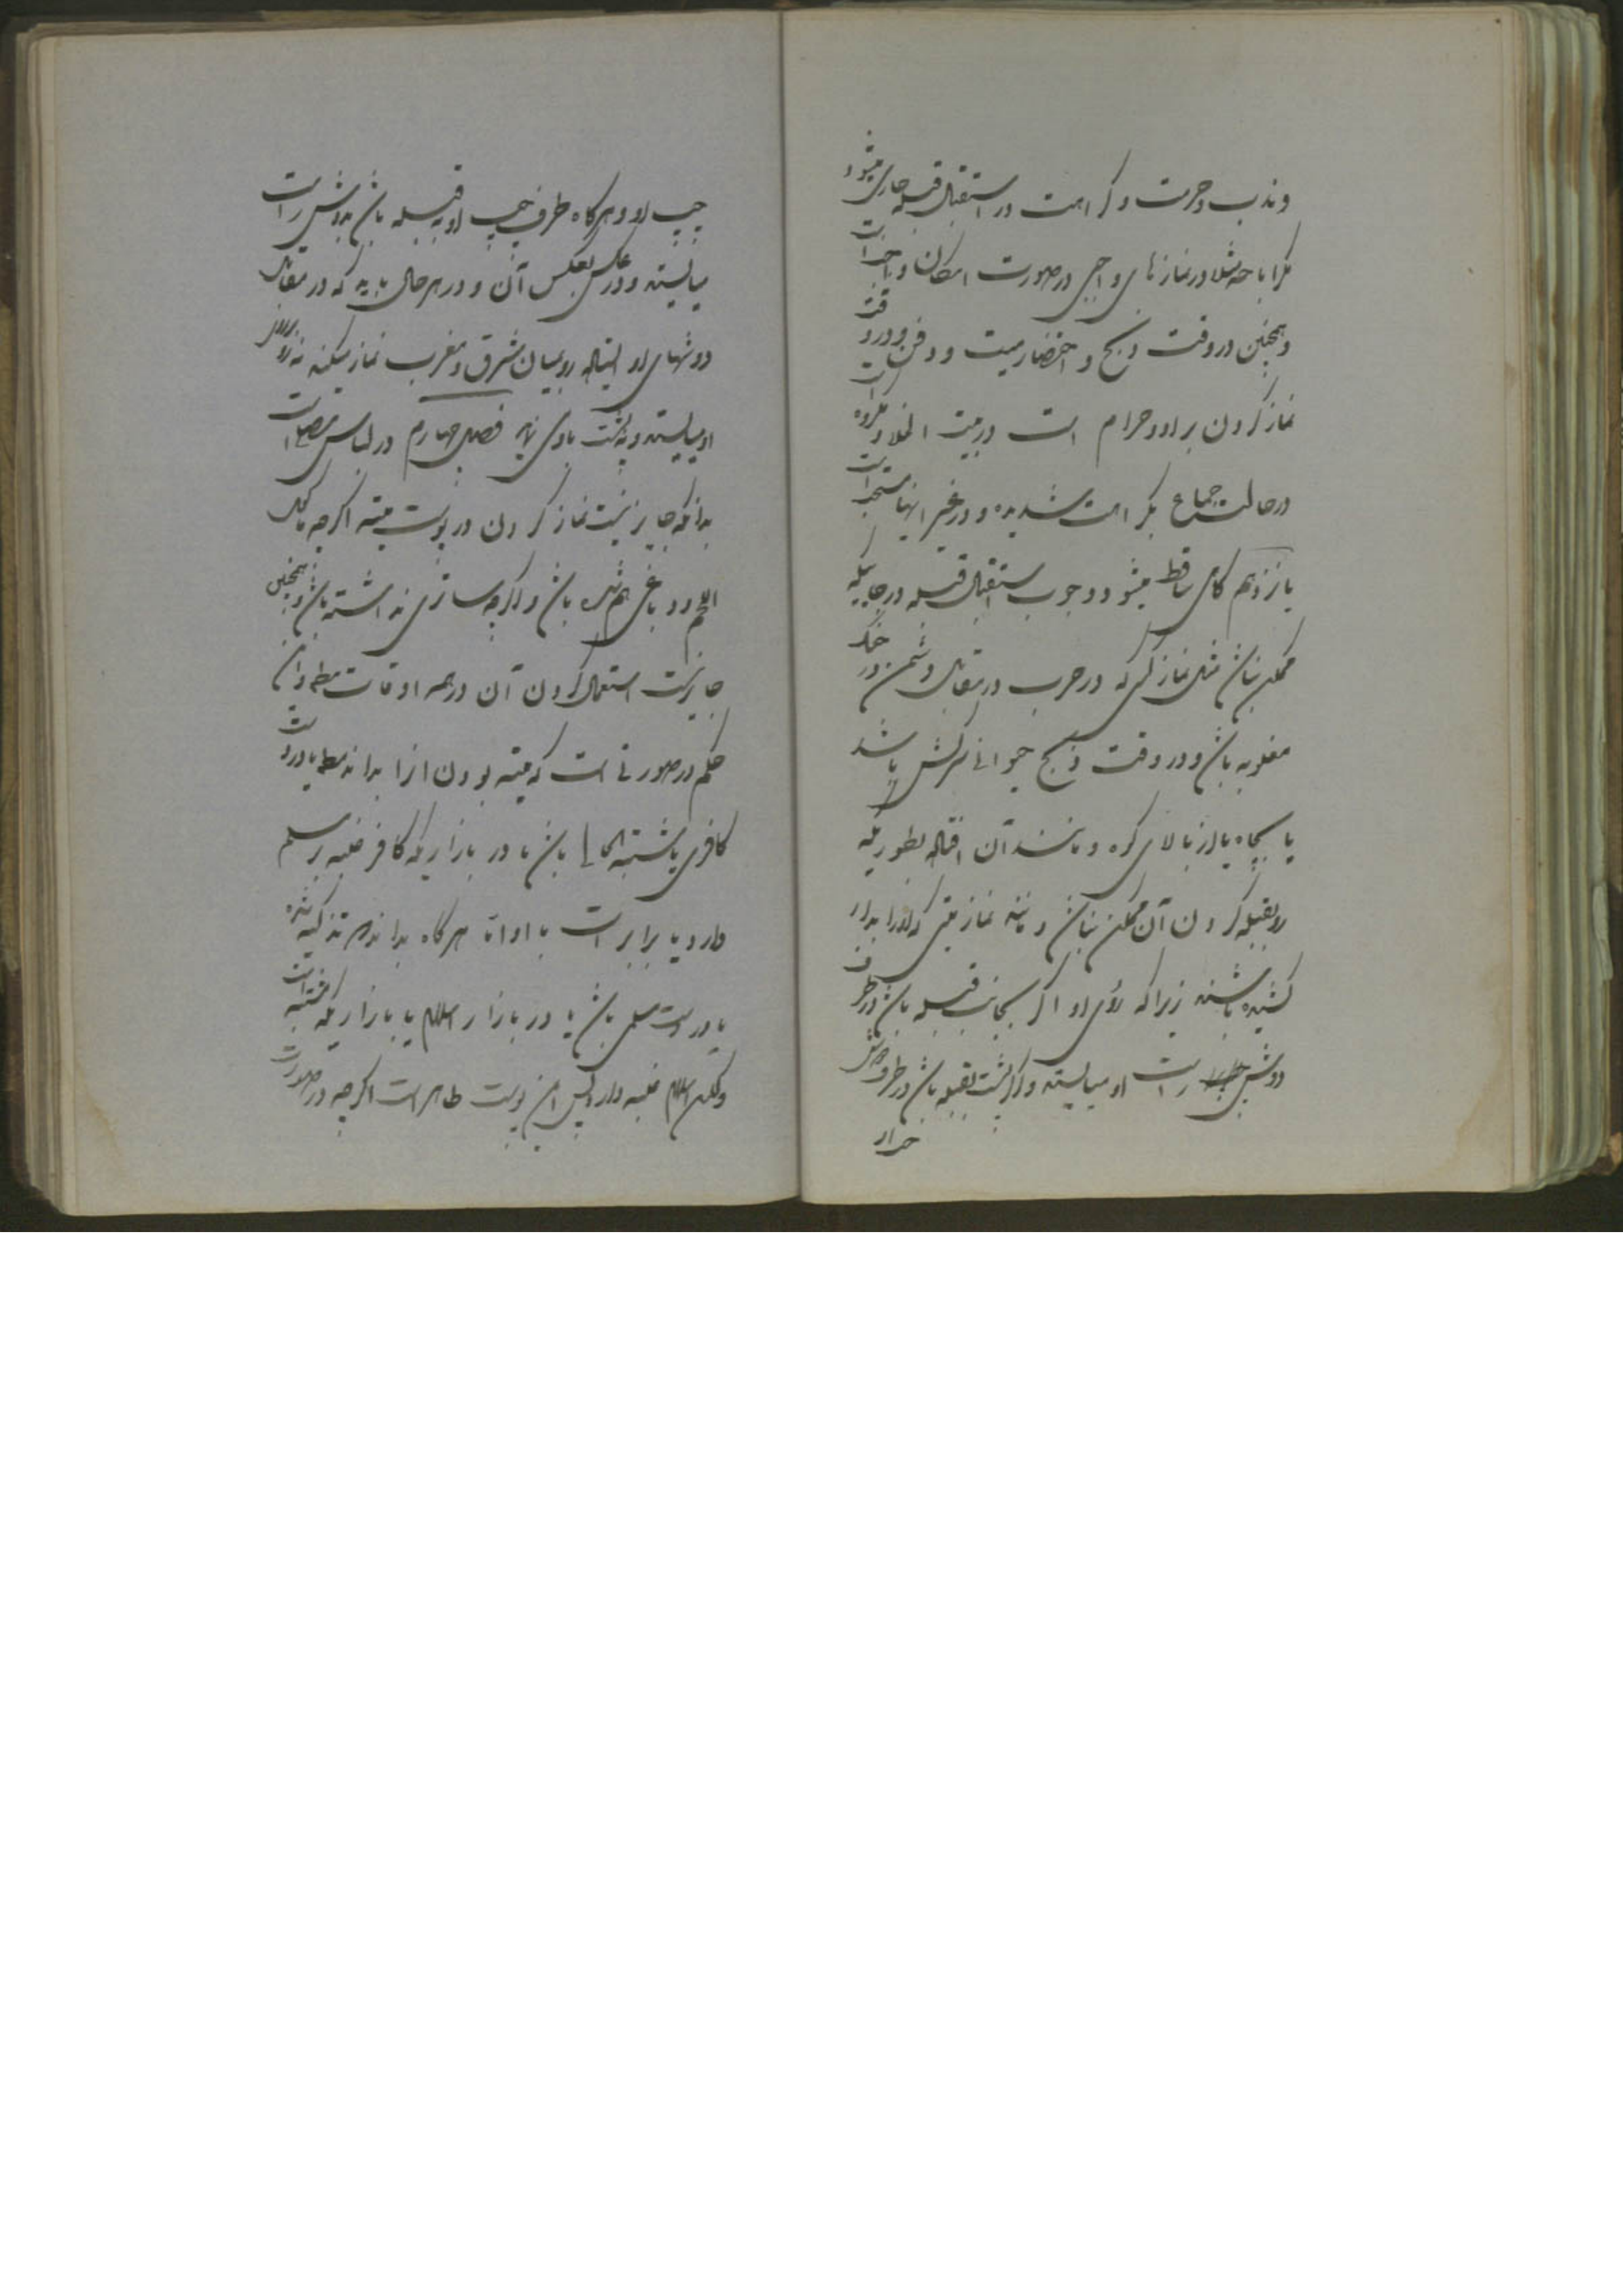 وندب وحرمت وکراهت در استقبال قبله جاری میشود
مکر اباحه مثلا در نمازهای واجبی در صورت امکان واجب است
وهمچنین در وقت ذبح و احتضار میت و دفن و در وقت
نماز کردن بر او و حرام است در بیت الخلا و مکروه است
در حالت جماع بکراهت شدیده و در غیر اینها مستحب است
یازدهم کاهی ساقط میشود وجوب استقبال قبله در جائیکه
ممکن نباشد مثل نماز کسی که در حرب در مقابل دشمن در جنک
مغلوبه باشد و در وقت ذبح حیوانی سرکش باشد یا
یا بچاه یا از بالای کوه و مانند آن افتاده بطوریکه
رو بقبله کردن آن ممکن نباشد و مانند نماز میتی که او را بدار
کشیده باشند زیرا که روی او اکر بجانب قبله باشد در طرف
دوش راست او میایستد و اکر پشت بقبله باشد در طرف دوش
چپ او
چپ او و هرکاه طرف چپ او بقبله باشد بدوش راست
میایستد و در عکس بعکس آن و در هر حال باید که در مقابل
دوشهای او ایستاده رو بمیان مشرق و مغرب نماز میکند نه رو بروی
او میایستد و نه پشت باو می نماید فصل چهارم در لباس مصلی است
بدانکه جایز نیست نماز کردن در پوست میته اکرچه ماکول
اللحم و دباغی هم شده باشد و اکرچه ساتری نداشته باشد و همچنین
جایز نیست استعمال کردن آن در همه اوقات مطلقا و این
حکم در صورتی است که میته بودن انرا بداند مطلقا یا در دست
کافری یا مشتبه الحالی باشد یا در بازاریکه کافر غلبه بر مسلم
دارد یا برابر است با او اما هرکاه بداند که تذکیه شده
یا در دست مسلمی باشد یا در بازار اسلام یا بازاریکه مشتبه است
ولکن اسلام غلبه دارد پس این پوست طاهر است اکرچه در صورت